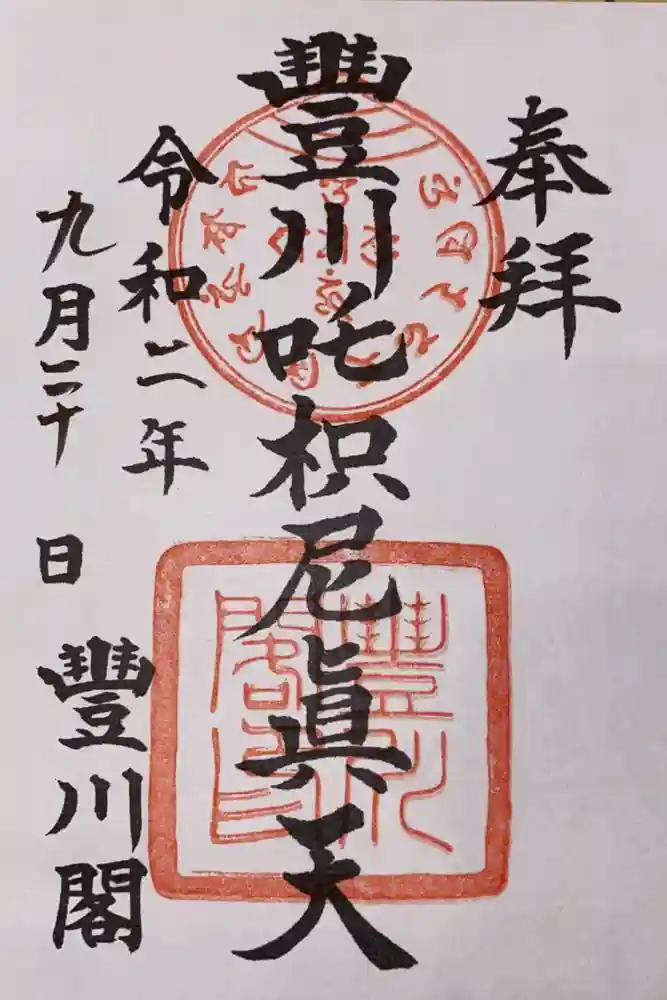 奉拝
豐川吒枳尼眞天
令和二年
九月二十日
豐川閣
豐川閣印